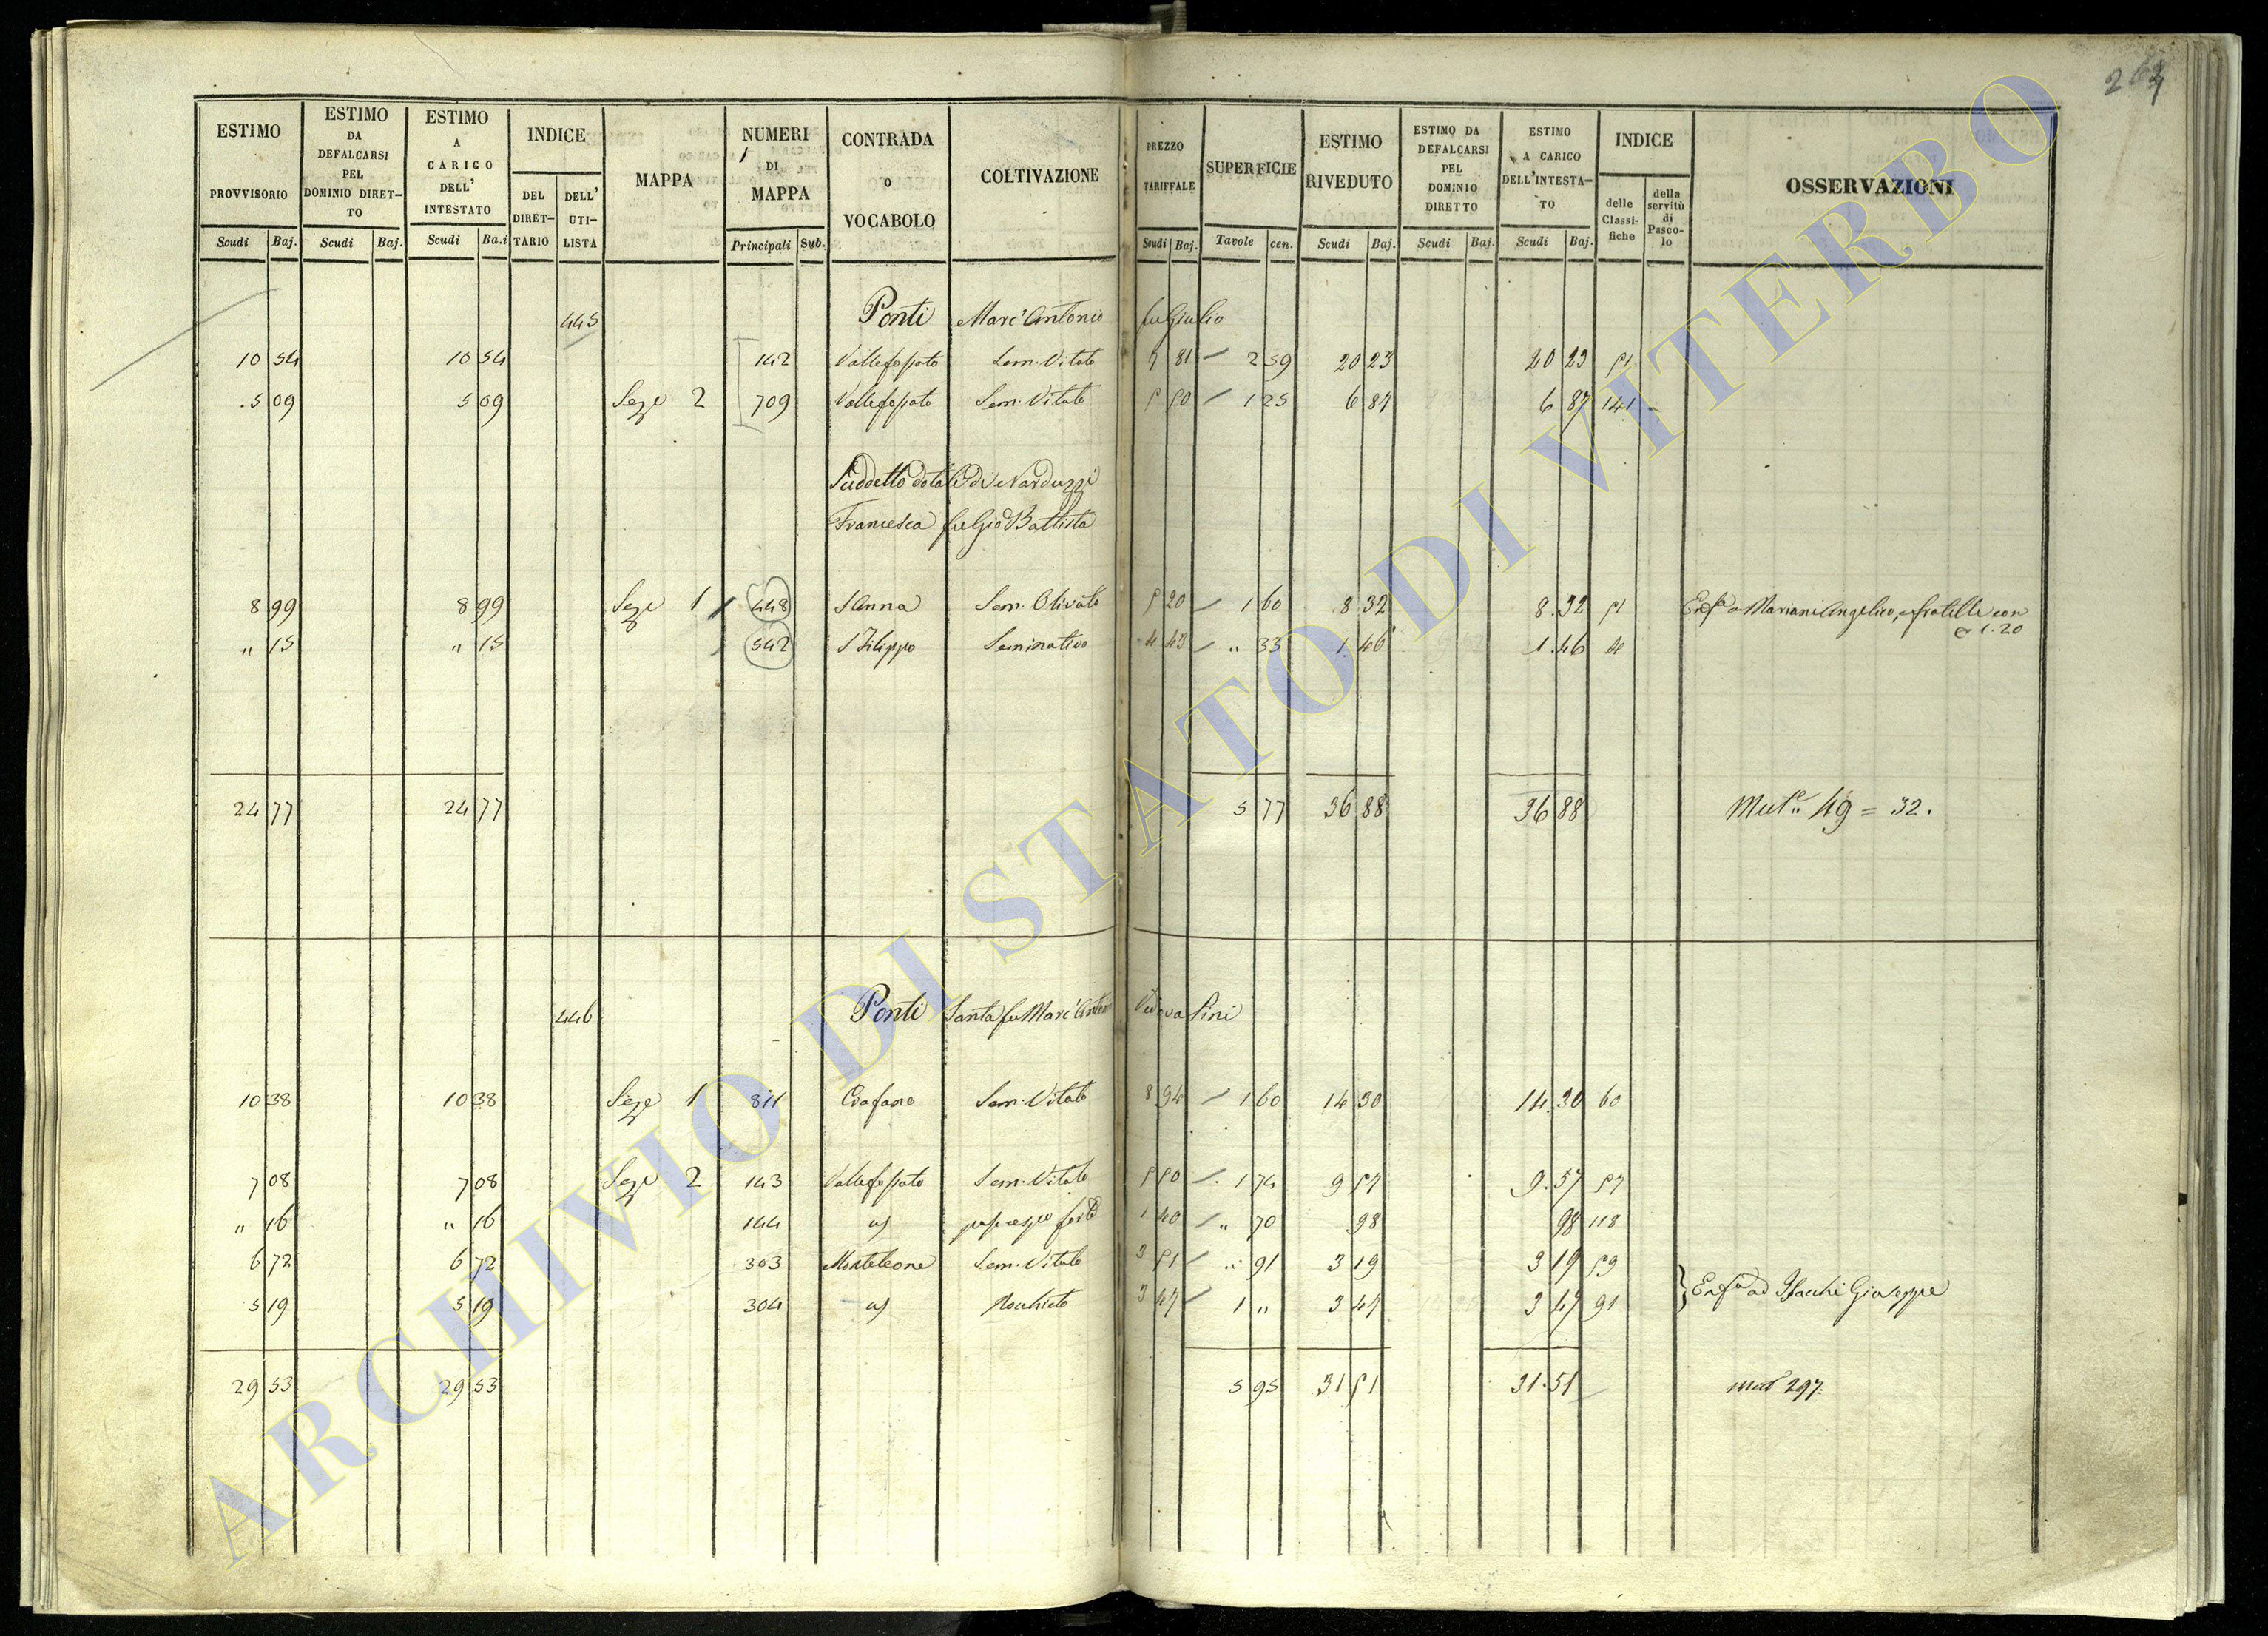 264
ESTIMO PROVVISORIO Scudi Baj.
ESTIMO DA DEFALCARSI PEL DOMINIO DIRETTO Scudi Baj.
ESTIMO A CARICO DELL' INTESTATO Scudi Ba.i
INDICE DEL DIRETTARIO DELL' UTILISTA
MAPPA
NUMERI DI MAPPA Principali Sub.
CONTRADA O VOCABOLO
COLTIVAZIONE
PREZZO TARIFFALE Scudi Baj.
SUPERFICIE Tavole cen.
ESTIMO RIVEDUTO Scudi Baj.
ESTIMO DA DEFALCARSI PEL DOMINIO DIRETTO Scudi Baj.
ESTIMO A CARICO DELL'INTESTATO Scudi Baj.
INDICE delle Classifiche della servitù di Pascolo
OSSERVAZIONI
445 Ponti Marc'Antonio fu Giulio
10 54 10 54 142 Vallefossato Sem. Vitato 7 81 2 59 20 23 20 23 51
5 09 5 09 Seze 2 709 Vallefossato Sem. Vitato 5 50 1 25 6 87 6 87 141
Suddetto dotale di Narduzzi
Francesca fu Gio Battista
8 99 8 99 Seze 1 448 S Anna Sem. Olivato 5 20 1 60 8 32 8.32 51 a Mariani Angelico, e fratelli con
1.20
" 15 " 15 542 S Filippo Seminativo 4 43 " 33 1.46 1.46 4
24 77 24 77 5 77 36 88 36 88 Mut.e 49 = 32.
446 Ponti Santa fu Marc'Antonio Vedova Pini
10 38 10 38 Seze 1 811 Sem. Vitato 8 94 1 60 14 30 14.30 60
7 08 7 08 Seze 2 143 Vallefossato Sem. Vitato 5 50 1 74 9 57 9.57 57
" 16 " 16 144 1 40 " 70 98 98 118
6 72 6 72 303 Monteleone Sem. Vitato 3 51 " 91 3 19 3 19 59
5 19 5 19 304 3 47 1 " 3 47 3 47 91 ad Giuseppe
29 53 29 53 5 95 31 51 31.51 mut 297.
ARCHIVIO DI STATO DI VITERBO